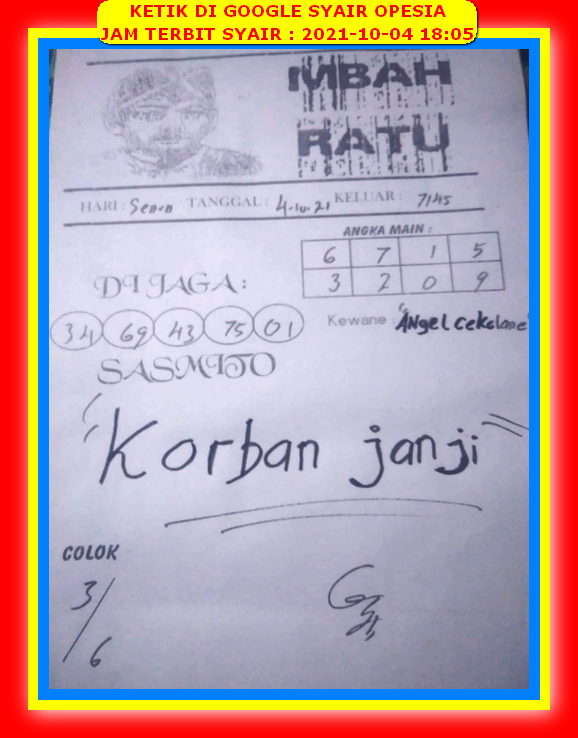 KETIK DI GOOGLE SYAIR OPESIA
JAM TERBIT SYAIR : 2021-10-04 18:05
MBAH
RATU
HARI : Senen TANGGAL : 4-10-21 KELUAR : 7145
ANGKA MAIN :
6 7 1 5
3 2 0 9
DI JAGA :
34 69 43 75 01
Kewane : "ANgel cekelane"
SASMITO
"Korban janji"
COLOK
3/6